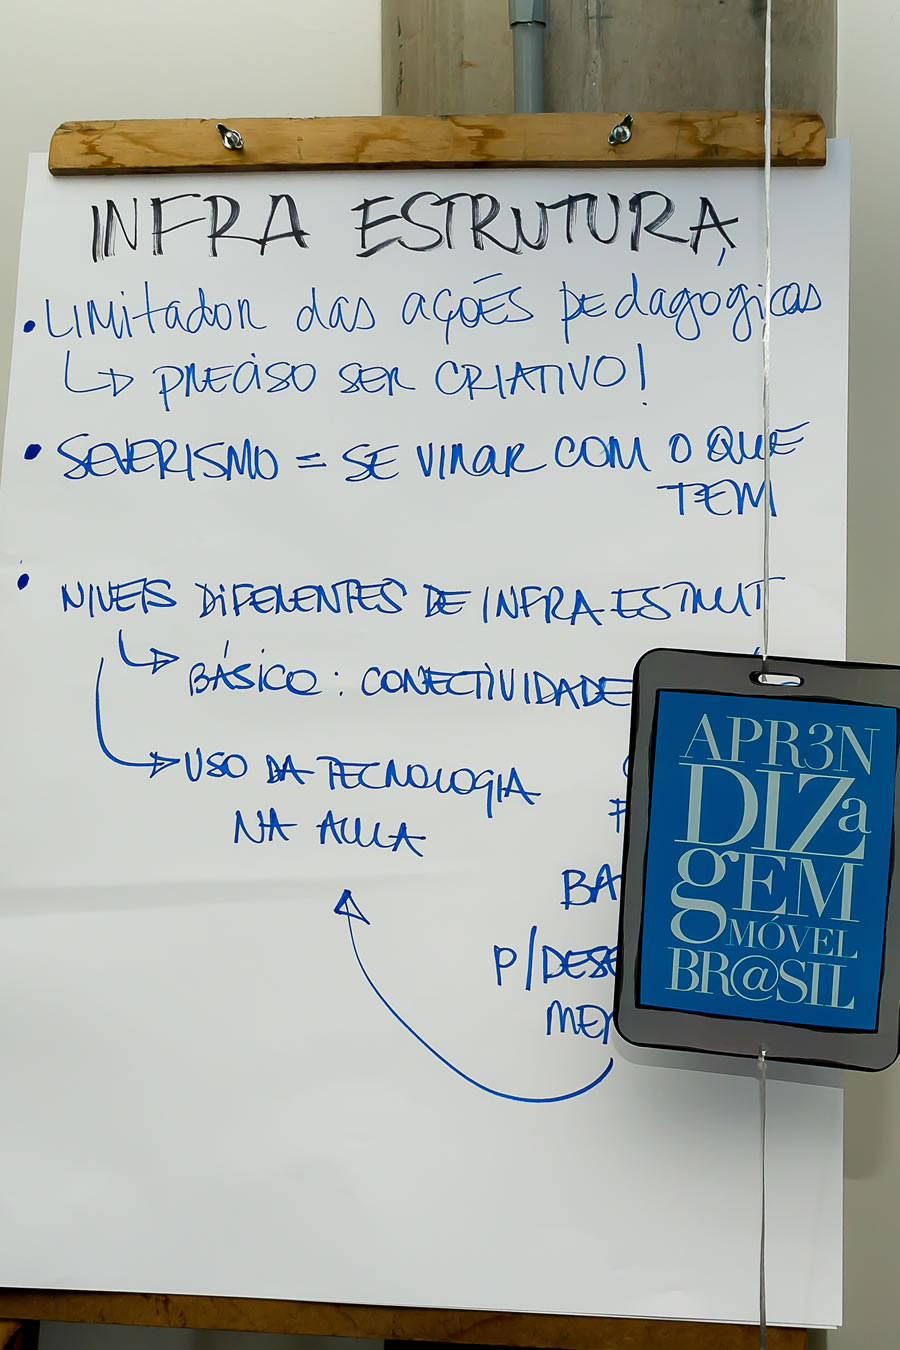 INFRA ESTRUTURA
• LIMITADOR DAS AÇÕES PEDAGÓGICAS
↳ PRECISO SER CRIATIVO!
• SEVERISMO = SE VIRAR COM O QUE
TEM
• NIVEIS DIFERENTES DE INFRA ESTRUT
BÁSICO: CONECTIVIDADE
USO DA TECNOLOGIA
NA AULA
BA
P/DESE
MEN
APR3N
DIZa
gEM
MÓVEL
BR@SIL